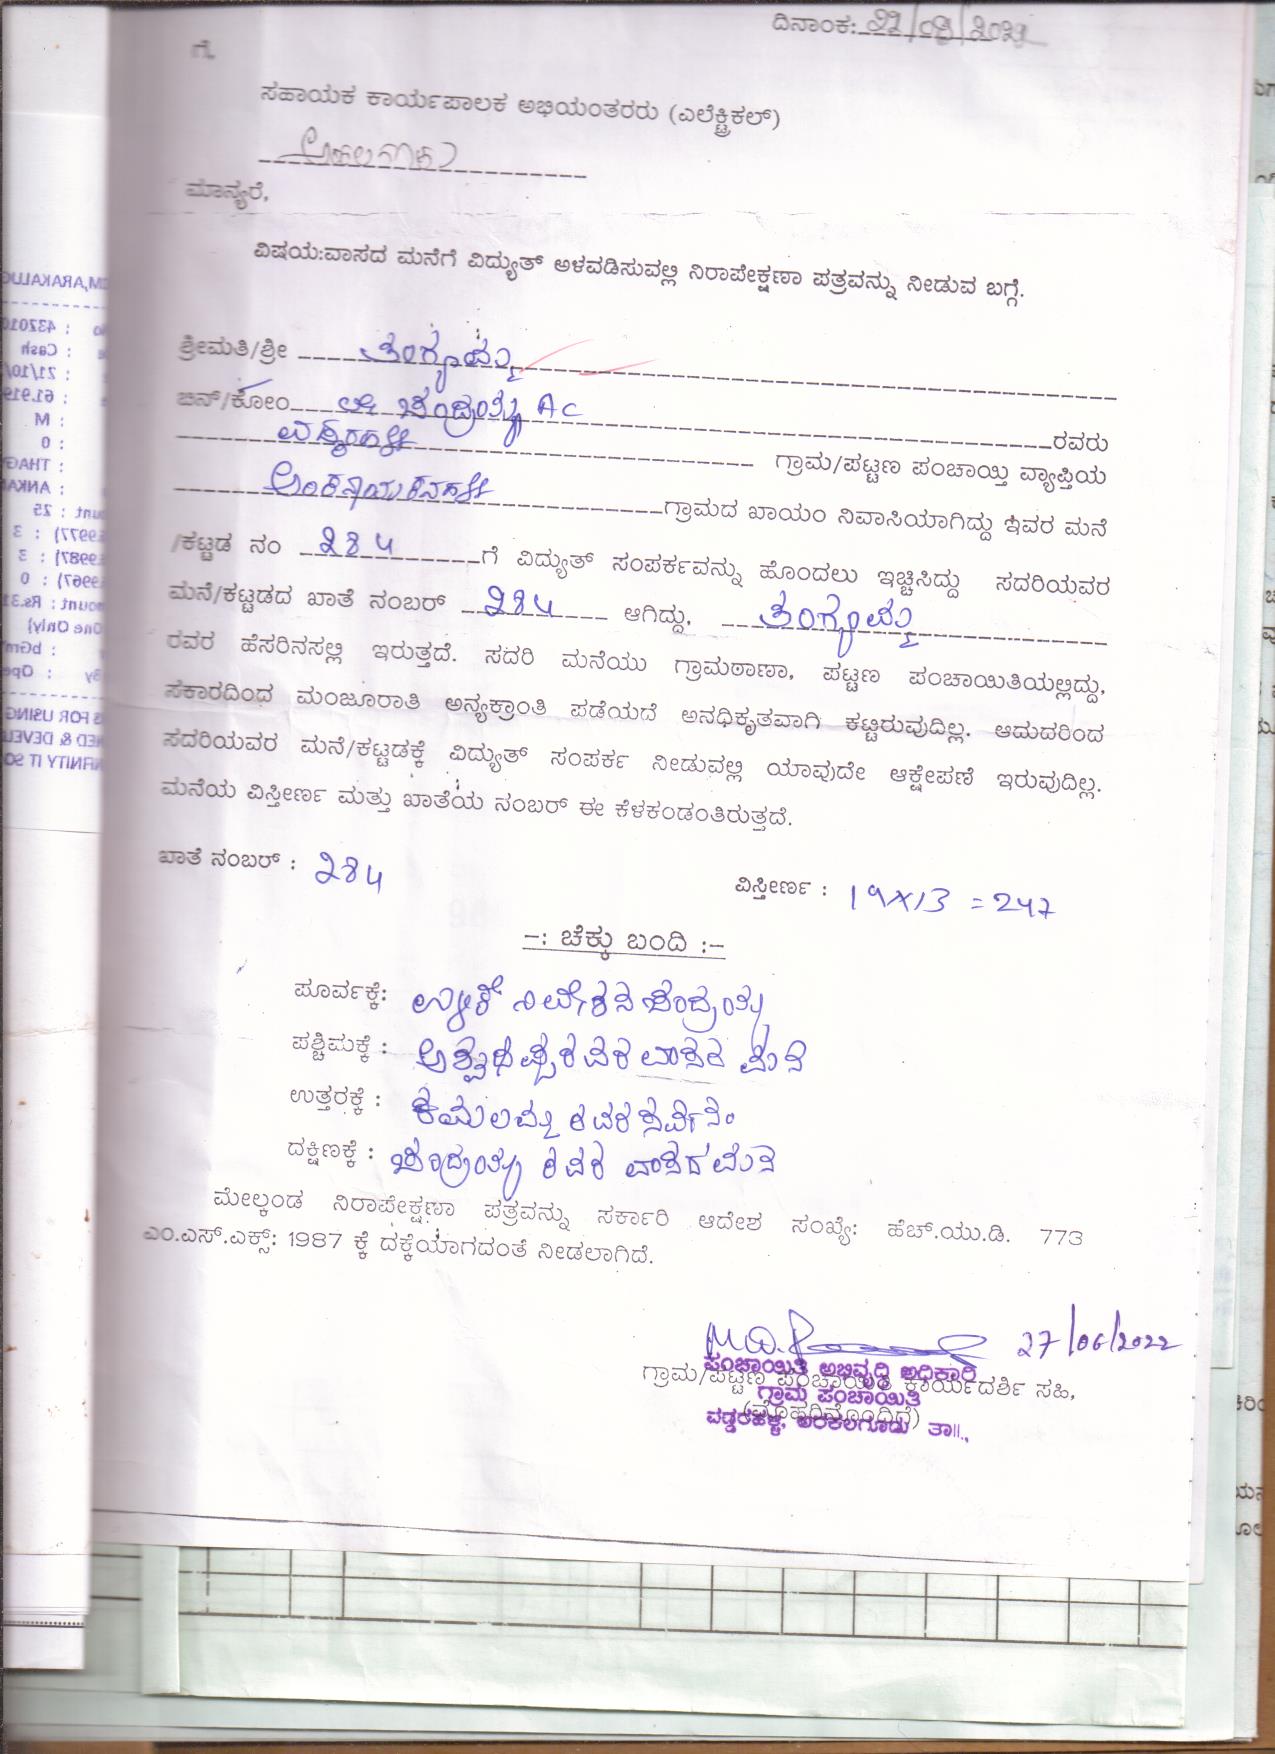 ದಿನಾಂಕ: 22/08/2022
ಗೆ,
ಸಹಾಯಕ ಕಾರ್ಯಪಾಲಕ ಅಭಿಯಂತರರು (ಎಲೆಕ್ಟ್ರಿಕಲ್)
ಮಾನ್ಯರೆ,
ವಿಷಯ:ವಾಸದ ಮನೆಗೆ ವಿದ್ಯುತ್ ಅಳವಡಿಸುವಲ್ಲಿ ನಿರಾಪೇಕ್ಷಣಾ ಪತ್ರವನ್ನು ನೀಡುವ ಬಗ್ಗೆ.
ಶ್ರೀಮತಿ/ಶ್ರೀ ತಂಗ್ಯಮ್ಮ
ಬಿನ್/ಕೋಂ ಲೇ ಚಂದ್ರಯ್ಯ AC ರವರು
ವಡ್ಡರಹಳ್ಳಿ ಗ್ರಾಮ/ಪಟ್ಟಣ ಪಂಚಾಯ್ತಿ ವ್ಯಾಪ್ತಿಯ
ಅಂಕನಾಯಕನಹಳ್ಳಿ ಗ್ರಾಮದ ಖಾಯಂ ನಿವಾಸಿಯಾಗಿದ್ದು ಇವರ ಮನೆ
/ಕಟ್ಟಡ ನಂ 284 ಗೆ ವಿದ್ಯುತ್ ಸಂಪರ್ಕವನ್ನು ಹೊಂದಲು ಇಚ್ಚಿಸಿದ್ದು ಸದರಿಯವರ
ಮನೆ/ಕಟ್ಟಡದ ಖಾತೆ ನಂಬರ್ 284 ಆಗಿದ್ದು, ತಂಗ್ಯಮ್ಮ
ರವರ ಹೆಸರಿನಸಲ್ಲಿ ಇರುತ್ತದೆ. ಸದರಿ ಮನೆಯು ಗ್ರಾಮಠಾಣಾ, ಪಟ್ಟಣ ಪಂಚಾಯಿತಿಯಲ್ಲಿದ್ದು,
ಸಕಾರದಿಂದ ಮಂಜೂರಾತಿ ಅನ್ಯಕ್ರಾಂತಿ ಪಡೆಯದೆ ಅನಧಿಕೃತವಾಗಿ ಕಟ್ಟಿರುವುದಿಲ್ಲ. ಆದುದರಿಂದ
ಸದರಿಯವರ ಮನೆ/ಕಟ್ಟಡಕ್ಕೆ ವಿದ್ಯುತ್ ಸಂಪರ್ಕ ನೀಡುವಲ್ಲಿ ಯಾವುದೇ ಆಕ್ಷೇಪಣೆ ಇರುವುದಿಲ್ಲ.
ಮನೆಯ ವಿಸ್ತೀರ್ಣ ಮತ್ತು ಖಾತೆಯ ನಂಬರ್ ಈ ಕೆಳಕಂಡಂತಿರುತ್ತದೆ.
ಖಾತೆ ನಂಬರ್ : 284
ವಿಸ್ತೀರ್ಣ : 19X13 = 247
-: ಚೆಕ್ಕು ಬಂದಿ :-
ಪೂರ್ವಕ್ಕೆ: ನಿವೇಶನ ಚಂದ್ರಯ್ಯ
ಪಶ್ಚಿಮಕ್ಕೆ : ರವರ ವಾಸದ ಮನೆ
ಉತ್ತರಕ್ಕೆ : ಕಮಲಮ್ಮ ರವರ
ದಕ್ಷಿಣಕ್ಕೆ : ಚಂದ್ರಯ್ಯ ರವರ ವಾಸದ ಮನೆ
ಮೇಲ್ಕಂಡ ನಿರಾಪೇಕ್ಷಣಾ ಪತ್ರವನ್ನು ಸರ್ಕಾರಿ ಆದೇಶ ಸಂಖ್ಯೆ: ಹೆಚ್.ಯು.ಡಿ. 773
ಎಂ.ಎಸ್.ಎಕ್ಸ್: 1987 ಕ್ಕೆ ದಕ್ಕೆಯಾಗದಂತೆ ನೀಡಲಾಗಿದೆ.
27/06/2022
ಪಂಚಾಯಿತಿ ಅಭಿವೃದ್ಧಿ ಅಧಿಕಾರಿ
ಗ್ರಾಮ/ಪಟ್ಟಣ ಪಂಚಾಯಿತಿ ಕಾರ್ಯದರ್ಶಿ ಸಹಿ,
ಗ್ರಾಮ ಪಂಚಾಯಿತಿ
(ಮೊಹರಿನೊಂದಿಗೆ)
ವಡ್ಡರಹಳ್ಳಿ, ಅರಕಲಗೂಡು ತಾ||.,